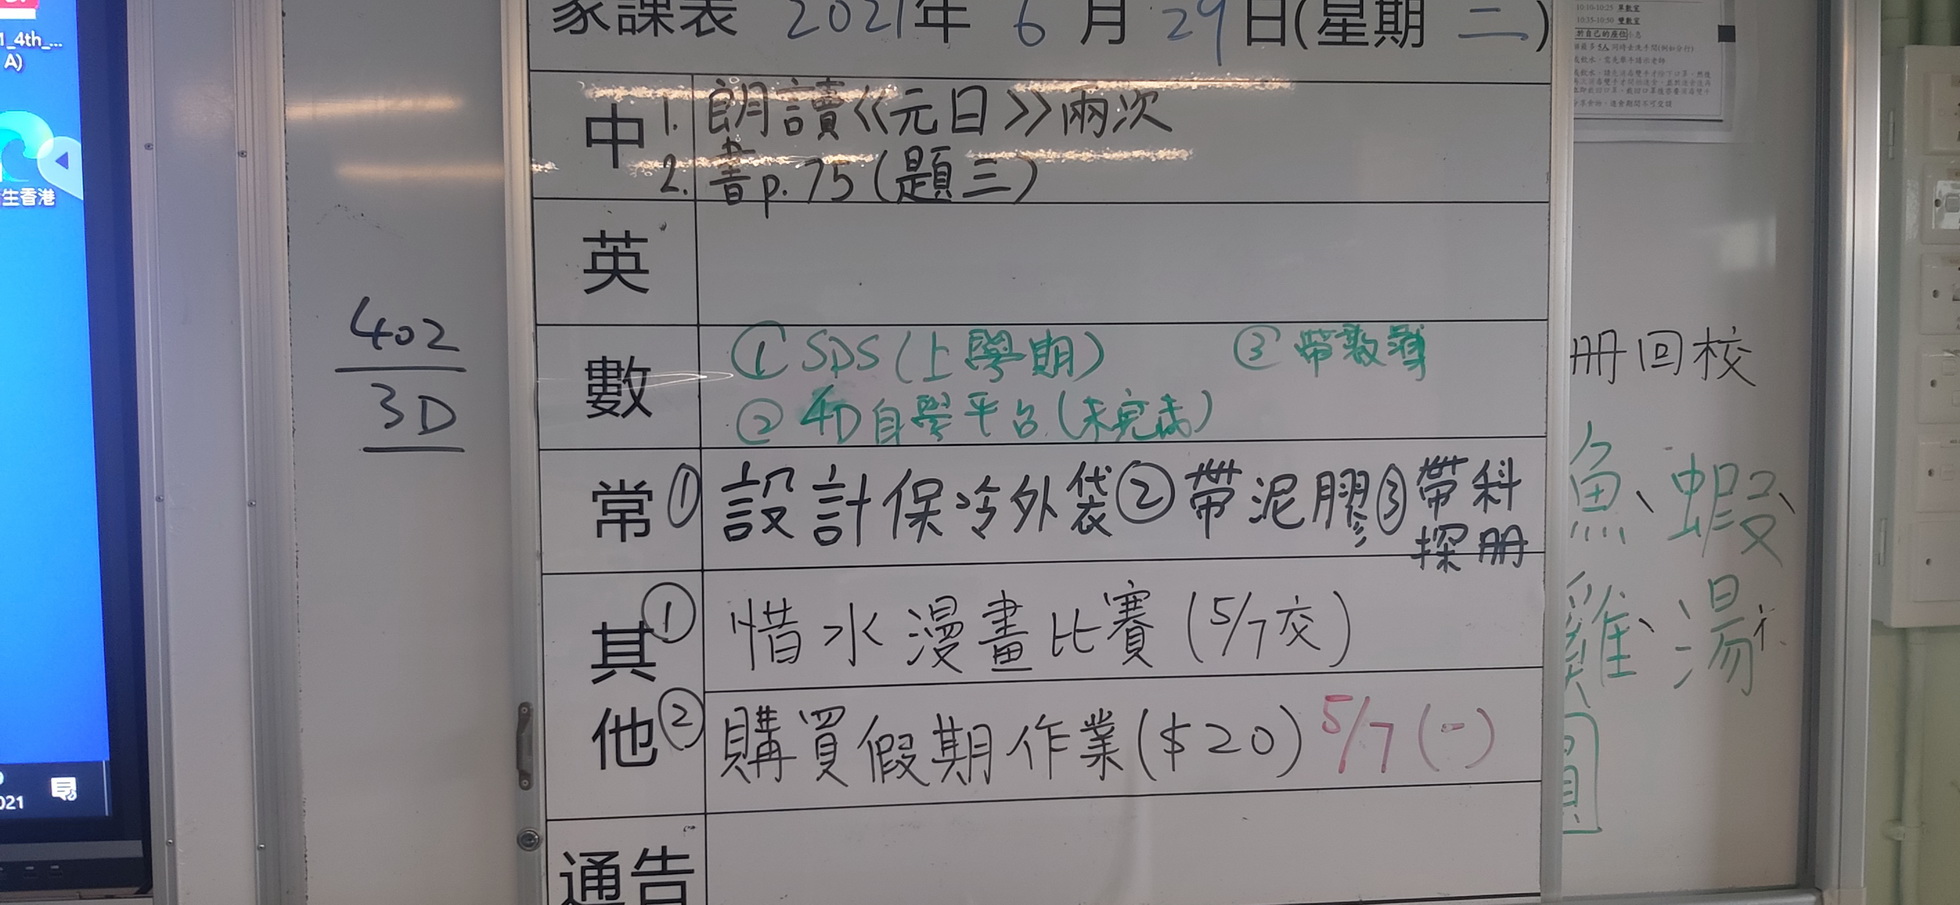 家課表 2021年 6 月 29日(星期 二)
中
1. 朗讀《元日》兩次
2. 書p.75(題三)
英
數
① SDS(上學期) ③ 帶數簿
② 4D自學平台(未完成)
常 ① 設計保冷外袋 ② 帶泥膠 ③ 帶科
探册
其他
① 惜水漫畫比賽(5/7交)
② 購買假期作業($20) 5/7(一)
通告
402
3D
册回校
魚、蝦、
雞、湯
1_4th_...
A)
生香港
021
10:10-10:25
10:35-10:50